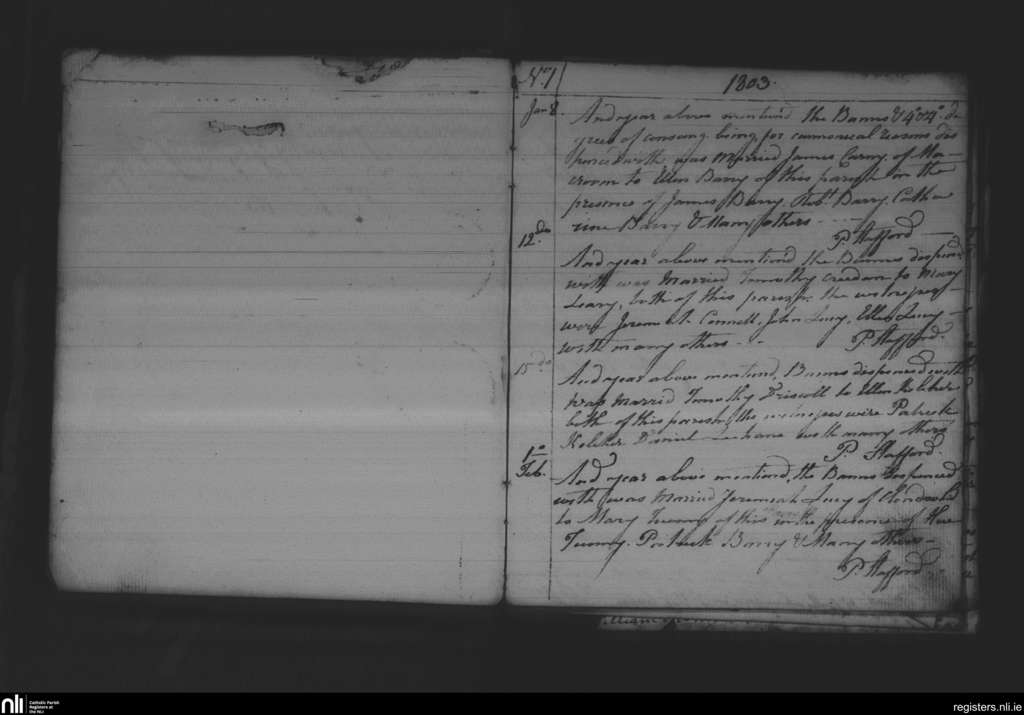 No. 1 1803.
Jan 8. And year above mention'd the Banns & 4o & 4o de
grees of consang. being for cannonical reasons dis
pensed with was Married James Carny of Ma
croom to Ellen Barry of this parish in the
presence of James Barry, Robt. Barry, Cathe
rine Barry & Many others
P. Stafford
12do And year above mentiond the Banns dispens'd
with was Married Timothy Creedon to Mary
Leary, both of this parish, the witnesses
were Jeremh. Connell, John Lucy, Ellen Lucy
with many others
P. Stafford.
15do And year above mentiond, Banns dispensed with
was Married Timothy Driscoll to Ellen Keleher
both of this parish, the witnesses were Patrick
Keleher Daniel with many others
P. Stafford.
1o Feb. And year above mentiond, the Banns dispenced
with was Married Jeremiah Lucy of
to Mary Twomy of this in the presence of
Twomy. Patrick Barry & Many others
P. Stafford
nli Catholic Parish
Registers at
the NLI
registers.nli.ie